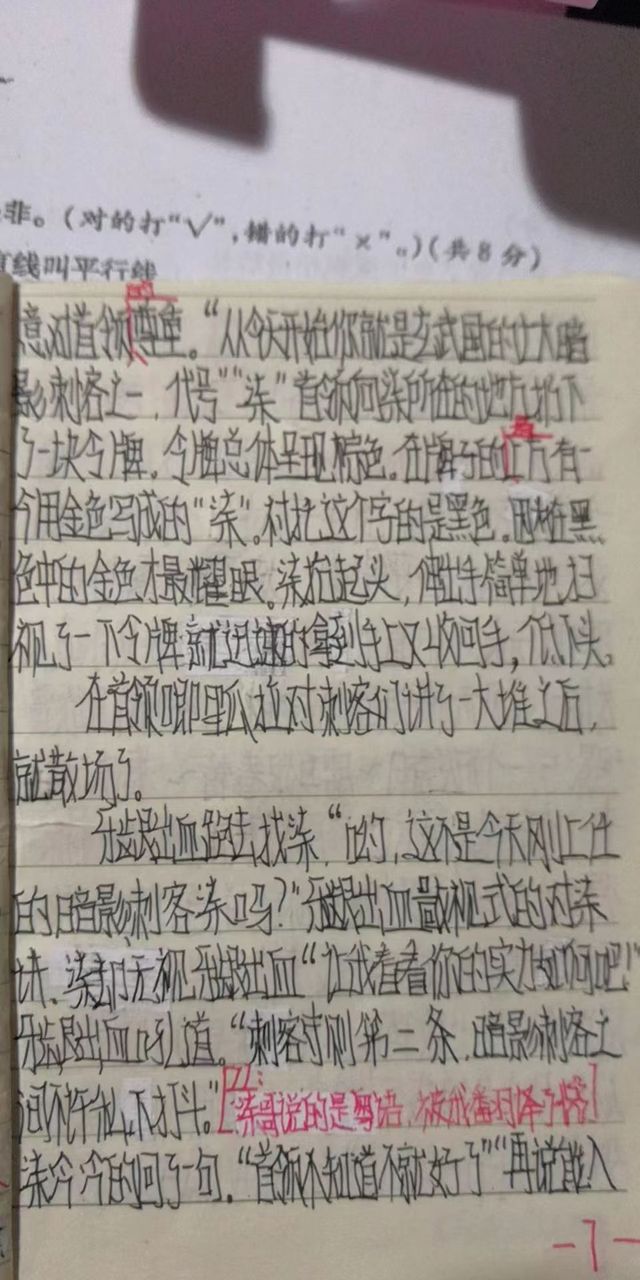 非。（对的打“√”，错的打“×”。）（共8分）
直线叫平行线
的
意对首领尊重。“从今天开始你就是玄武国的七大暗
影刺客之一，代号”“柒”首领向柒所在的地方扔下
了一块令牌。令牌总体呈现棕色。在牌子的正方有一
个用金色写成的“柒”。衬托这个字的是黑色。因桩黑
色中的金色才最耀眼。柒抬起头，伸出手简单地扫
视了一下令牌就迅速的拿到手上又收回手，低下头。
在首领唧里呱拉对刺客们讲了一大堆之后，
就散场了。
牙龈出血跑去找柒，“哟，这不是今天刚上任
的暗影刺客柒吗？”牙龈出血敌视式的对柒
讲、柒却无视牙龈出血“让我看看你的实力如何吧！”
牙龈出血吼道。“刺客守则第二条，暗影刺客之
间不许私下打斗。”[PS：柒哥说的是粤语，被我翻译了]
柒冷冷的回了一句。“首领不知道不就好了”“再说能入
-7-